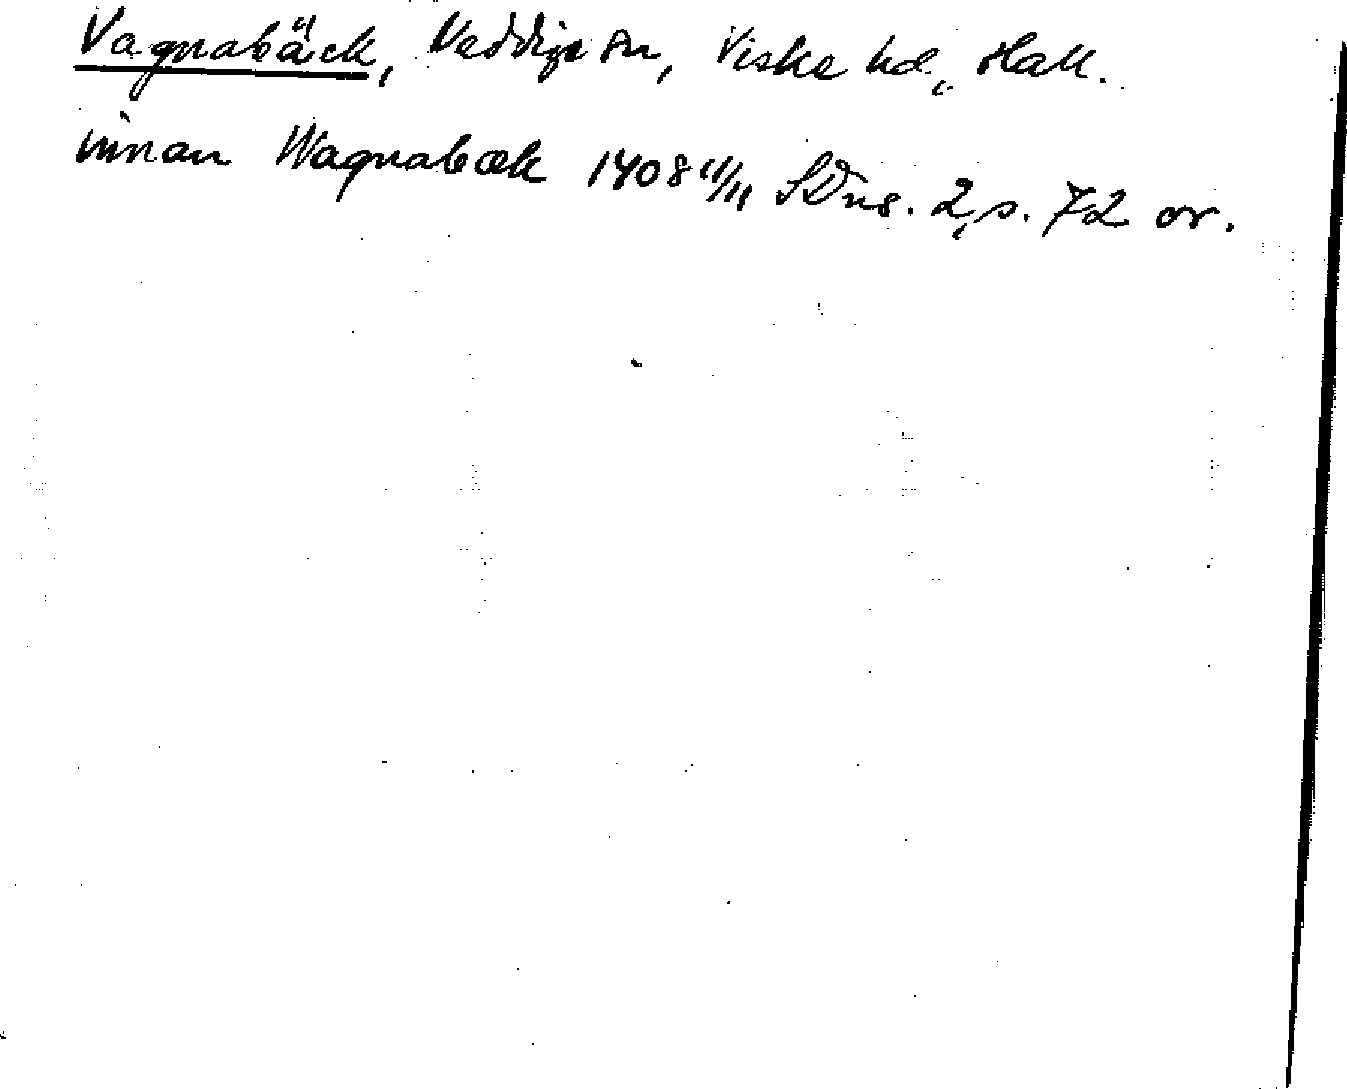 Vagnabäck, Veddige sn, Viske hd, Hall.
innan Wagnabæk 1408 11/11 SDns. 2, s. 72 or.